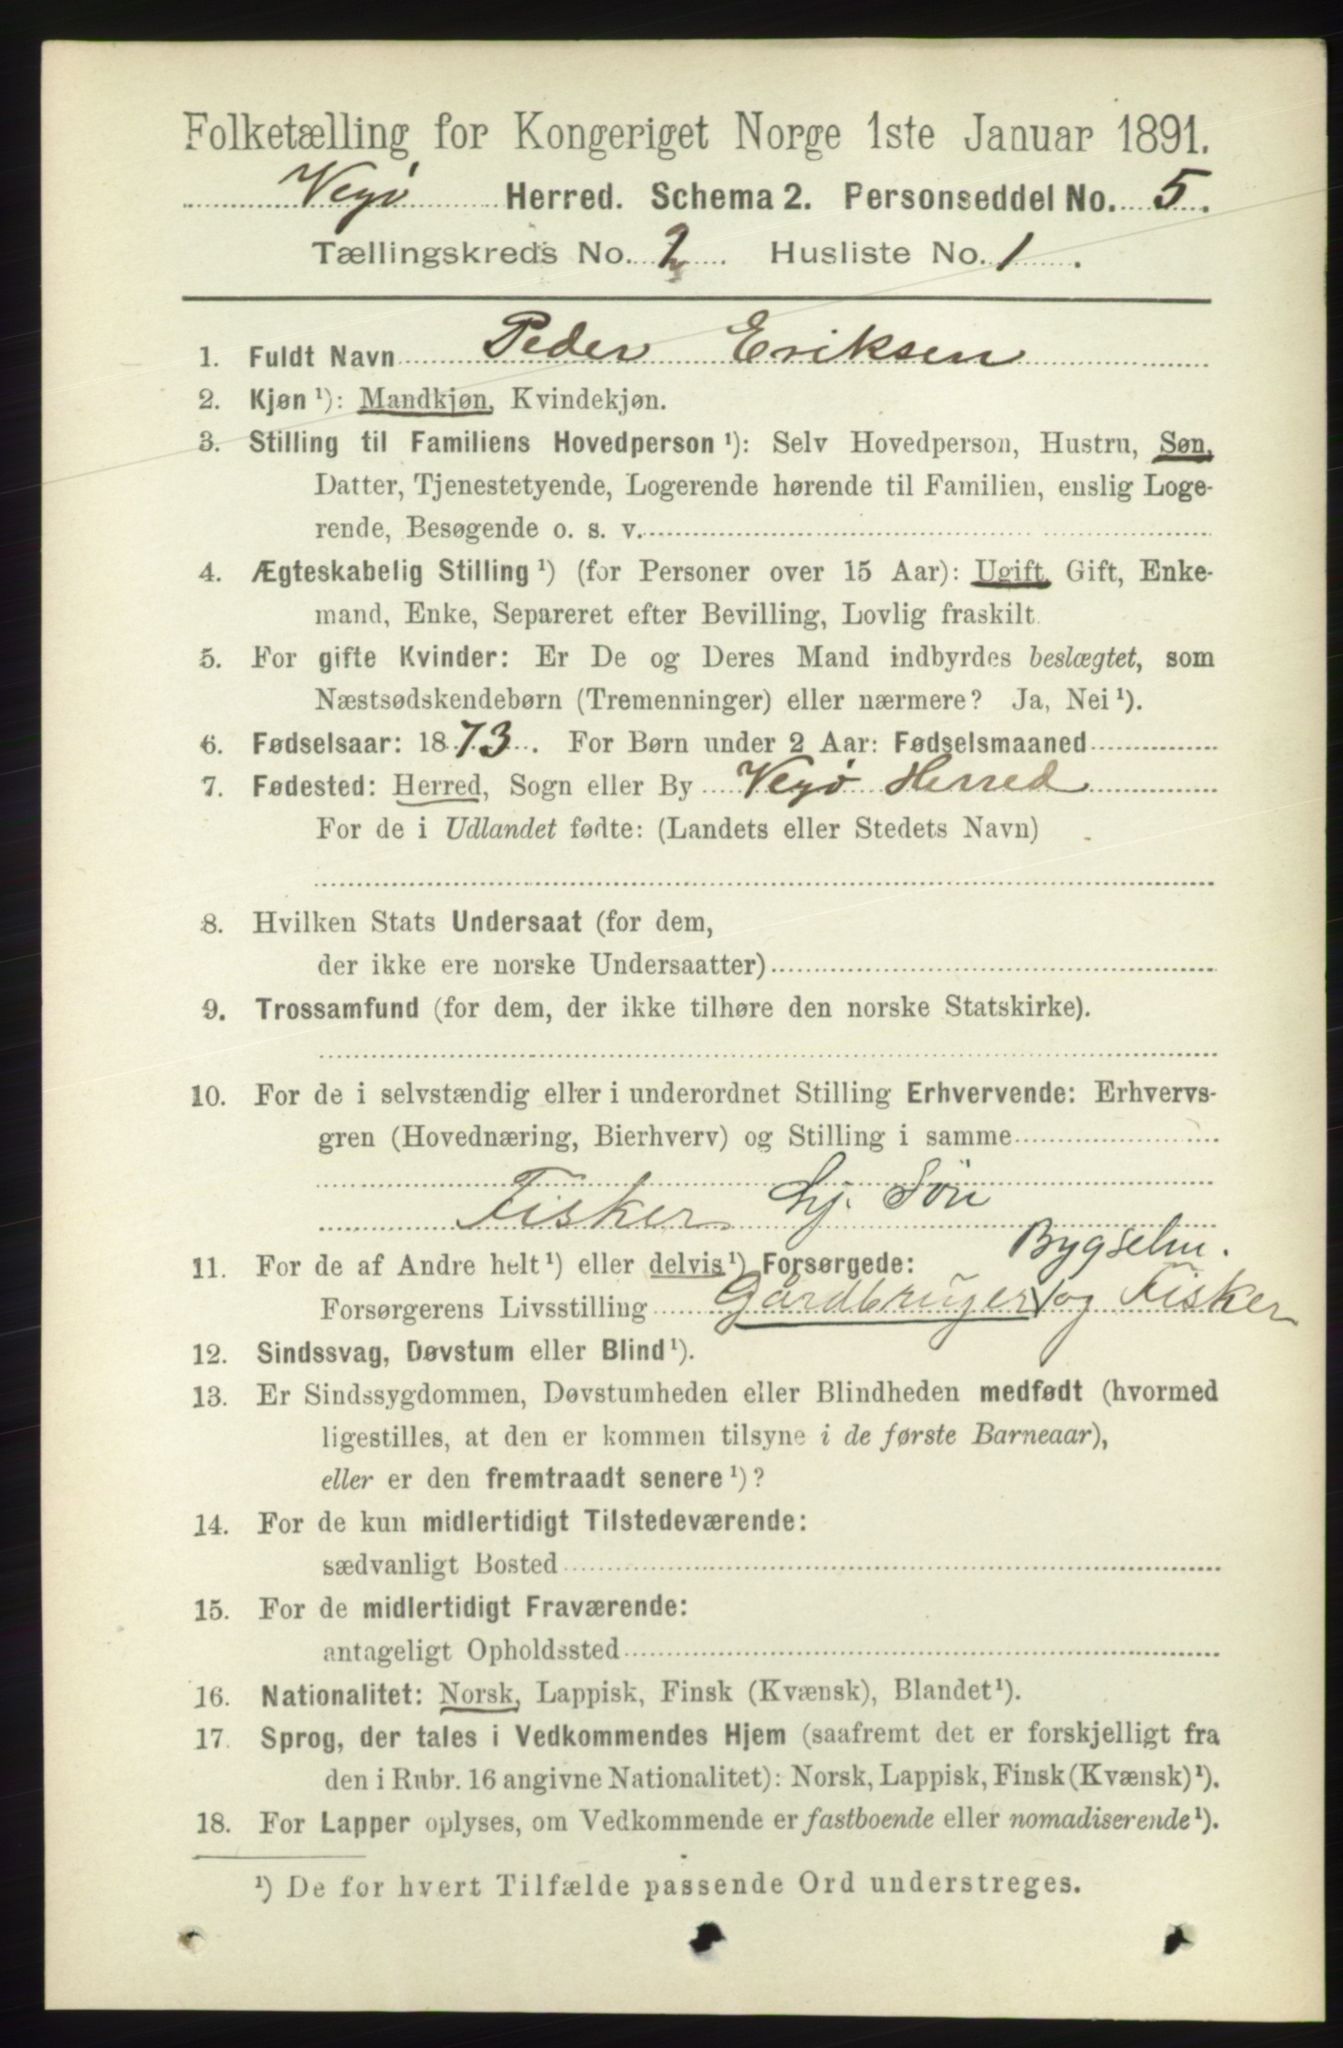 Folketælling for Kongeriget Norge 1ste Januar 1891.
Vegø Herred. Schema 2. Personseddel No. 5.
Tællingskreds No. 2. Husliste No. 1.
1. Fuldt Navn Peder Eriksen
2. Kjøn ¹): Mandkjøn, Kvindekjøn.
3. Stilling til Familiens Hovedperson ¹): Selv Hovedperson, Hustru, Søn,
Datter, Tjenestetyende, Logerende hørende til Familien, enslig Loge-
rende, Besøgende o. s. v.
4. Ægteskabelig Stilling ¹) (for Personer over 15 Aar): Ugift, Gift, Enke-
mand, Enke, Separeret efter Bevilling, Lovlig fraskilt.
5. For gifte Kvinder: Er De og Deres Mand indbyrdes beslægtet, som
Næstsødskendebørn (Tremenninger) eller nærmere? Ja, Nei ¹).
6. Fødselsaar: 1873. For Børn under 2 Aar: Fødselsmaaned
7. Fødested: Herred, Sogn eller By Vegø Herred
For de i Udlandet fødte: (Landets eller Stedets Navn)
8. Hvilken Stats Undersaat (for dem,
der ikke ere norske Undersaatter)
9. Trossamfund (for dem, der ikke tilhøre den norske Statskirke).
10. For de i selvstændig eller i underordnet Stilling Erhvervende: Erhvervs-
gren (Hovednæring, Bierhverv) og Stilling i samme
Fisker hj. Søn
Bygselm.
11. For de af Andre helt ¹) eller delvis ¹) Forsørgede:
Forsørgerens Livsstilling Gårdbruger og Fisker
12. Sindssvag, Døvstum eller Blind ¹).
13. Er Sindssygdommen, Døvstumheden eller Blindheden medfødt (hvormed
ligestilles, at den er kommen tilsyne i de første Barneaar),
eller er den fremtraadt senere ¹)?
14. For de kun midlertidigt Tilstedeværende:
sædvanligt Bosted
15. For de midlertidigt Fraværende:
antageligt Opholdssted
16. Nationalitet: Norsk, Lappisk, Finsk (Kvænsk), Blandet ¹).
17. Sprog, der tales i Vedkommendes Hjem (saafremt det er forskjelligt fra
den i Rubr. 16 angivne Nationalitet): Norsk, Lappisk, Finsk (Kvænsk) ¹).
18. For Lapper oplyses, om Vedkommende er fastboende eller nomadiserende ¹).
¹) De for hvert Tilfælde passende Ord understreges.